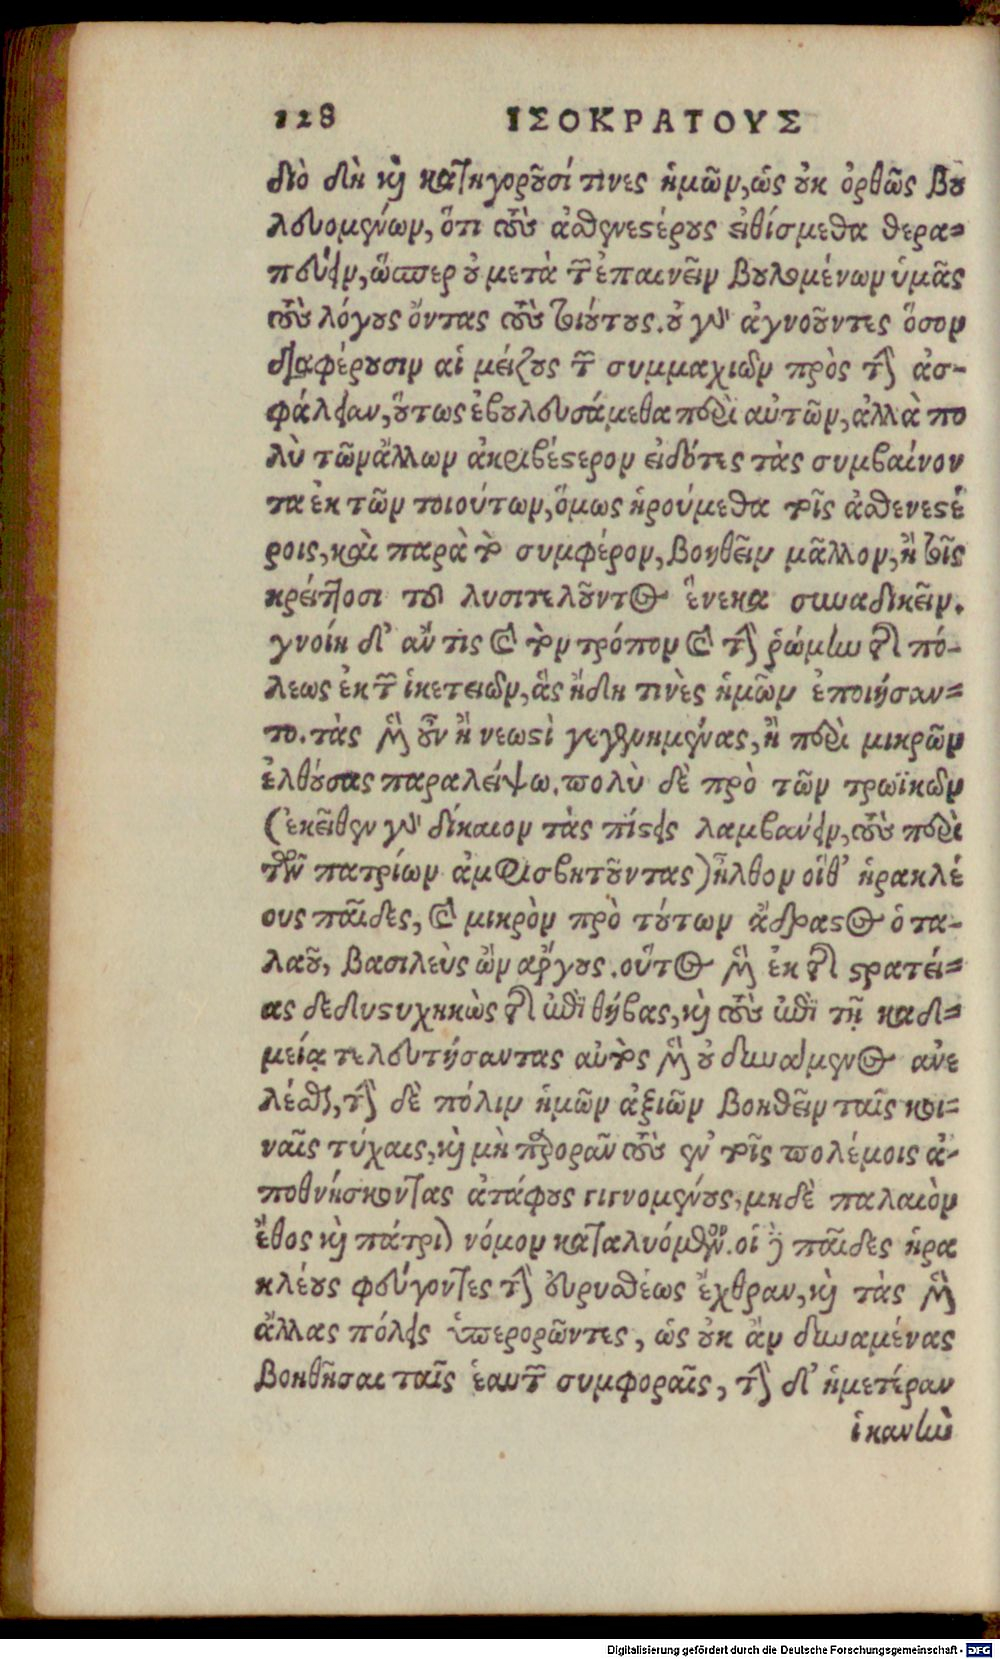 128 ΙΣΟΚΡΑΤΟΥΣ
διὸ δὴ καὶ κατηγοροῦσί τινες ἡμῶν, ὡς οὐκ ὀρθῶς βου
λευομένων, ὅτι τοὺς ἀσθενεστέρους εἰθίσμεθα θερα-
πεύειν, ὥσπερ οὐ μετὰ τῶν ἐπαινεῖν βουλομένων ὑμᾶς
τοὺς λόγους ὄντας τοὺς τοιούτους. οὐ γὰρ ἀγνοοῦντες ὅσον
διαφέρουσιν αἱ μείζους τῶν συμμαχιῶν πρὸς τὴν ἀσ-
φάλειαν, οὕτως ἐβουλευσάμεθα περὶ αὐτῶν, ἀλλὰ πο
λὺ τῶν ἄλλων ἀκριβέστερον εἰδότες τὰς συμβαίνον
τα ἐκ τῶν τοιούτων, ὅμως ἡρούμεθα τοῖς ἀσθενεστέ
ροις, καὶ παρὰ τὸ συμφέρον, βοηθεῖν μᾶλλον, ἢ τοῖς
κρείττοσι τοῦ λυσιτελοῦντος ἕνεκα συναδικεῖν.
γνοίη δ' ἄν τις καὶ τὸν τρόπον καὶ τὴν ῥώμην τῆς πό-
λεως ἐκ τῶν ἱκετειῶν, ἃς ἤδη τινὲς ἡμῶν ἐποιήσαν-
το. τὰς μὲν οὖν ἢ νεωστὶ γεγενημένας, ἢ περὶ μικρῶν
ἐλθούσας παραλείψω. πολὺ δὲ πρὸ τῶν τρωϊκῶν
(ἐκεῖθεν γὰρ δίκαιον τὰς πίστεις λαμβάνειν, τοὺς περὶ
τῶν πατρίων ἀμφισβητοῦντας) ἦλθον οἵθ' ἡρακλέ
ους παῖδες, καὶ μικρὸν πρὸ τούτων ἄδραστος ὁ τα-
λαοῦ, βασιλεὺς ὢν ἄργους. οὗτος μὲν ἐκ τῆς στρατεί-
ας δεδυστυχηκὼς τῆς ἐπὶ θήβας, καὶ τοὺς ἐπὶ τῇ καδ-
μείᾳ τελευτήσαντας αὐτὸς μὲν οὐ δυνάμενος ἀνε
λέσθαι, τὴν δὲ πόλιν ἡμῶν ἀξιῶν βοηθεῖν ταῖς κοι-
ναῖς τύχαις, καὶ μὴ περιορᾶν τοὺς ἐν τοῖς πολέμοις ἀ-
ποθνήσκοντας ἀτάφους γιγνομένους, μηδὲ παλαιὸν
ἔθος καὶ πάτριον νόμον καταλυόμενον. οἱ δὲ παῖδες ἡρα
κλέους φεύγοντες τὴν εὐρυσθέως ἔχθραν, καὶ τὰς μὲν
ἄλλας πόλεις ὑπερορῶντες, ὡς οὐκ ἂν δυναμένας
βοηθῆσαι ταῖς ἑαυτῶν συμφοραῖς, τὴν δ' ἡμετέραν
ἱκανὴν
Digitalisierung gefördert durch die Deutsche Forschungsgemeinschaft - DFG